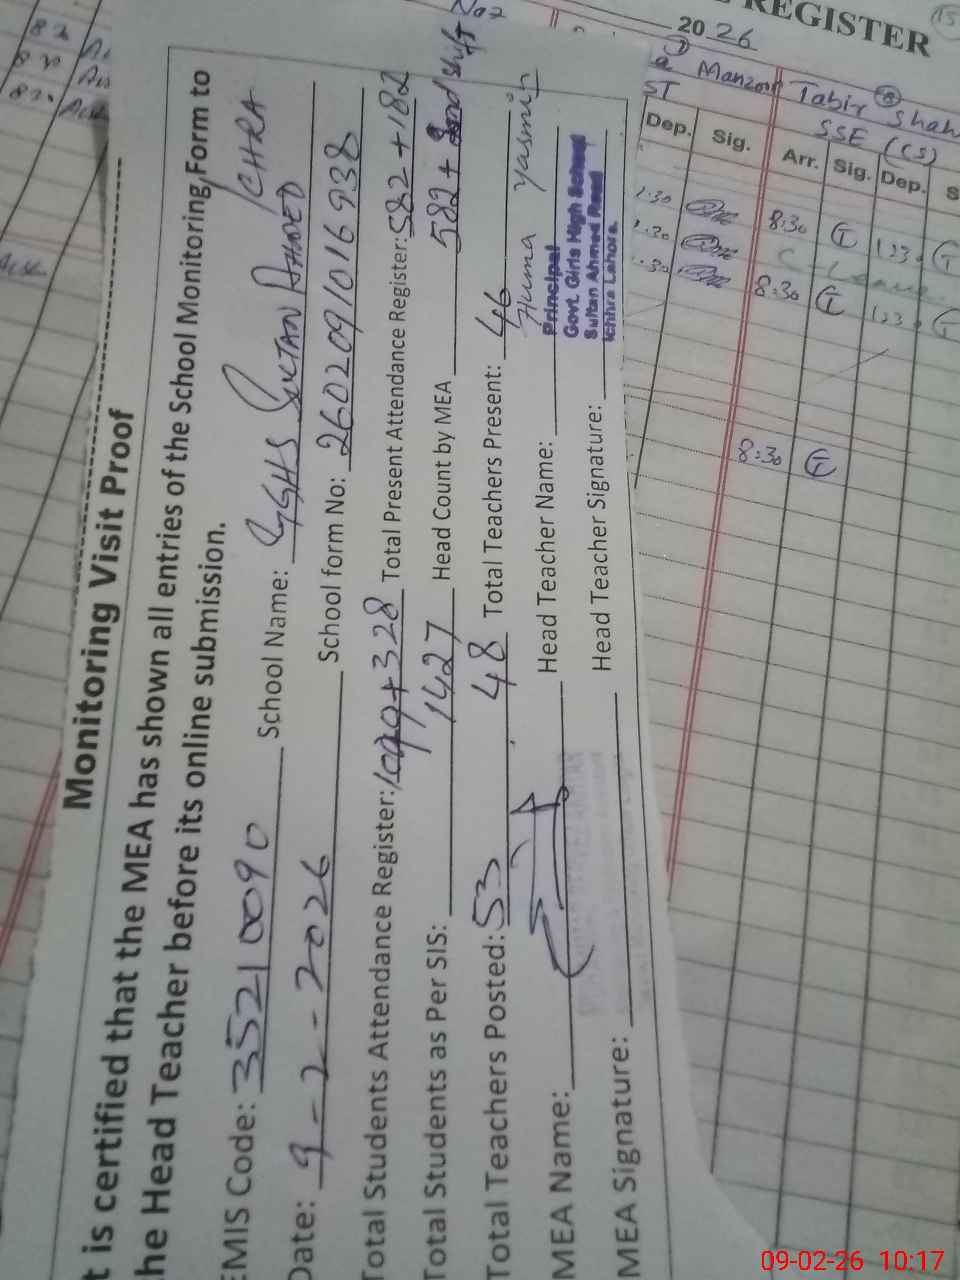 Monitoring Visit Proof
t is certified that the MEA has shown all entries of the School Monitoring Form to
he Head Teacher before its online submission.
EMIS Code: 35210090 School Name: GGHS SULTAN AHMED ICHRA
Date: 9-2-2026 School form No: 2602091016938
Total Students Attendance Register: 1099+328 Total Present Attendance Register: 582+182
Total Students as Per SIS: 1427 Head Count by MEA 582+ 2nd shift
Total Teachers Posted: 53 48 Total Teachers Present: 46
MEA Name: Head Teacher Name: Huma yasmin
MEA Signature: Head Teacher Signature:
Principal
Govt. Girls High School
Sultan Ahmed Road
Ichhra Lahore.
Naz
REGISTER
15
2026
Manzoor Tabir Shah
ST SSE (CS)
Dep. Sig. Arr. Sig. Dep.
1:30 8:30
1:30
1:30 8:30
8:30
09-02-26 10:17